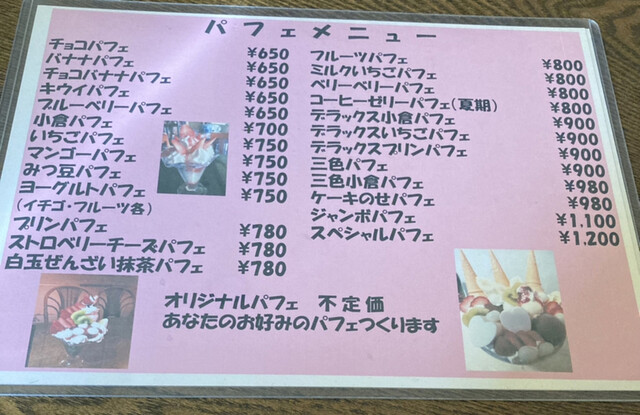 パフェメニュー
チョコパフェ ¥650
バナナパフェ ¥650
チョコバナナパフェ ¥650
キウイパフェ ¥650
ブルーベリーパフェ ¥650
小倉パフェ ¥700
いちごパフェ ¥750
マンゴーパフェ ¥750
みつ豆パフェ ¥750
ヨーグルトパフェ ¥750
(イチゴ・フルーツ各)
プリンパフェ ¥780
ストロベリーチーズパフェ ¥780
白玉ぜんざい抹茶パフェ ¥780
フルーツパフェ ¥800
ミルクいちごパフェ ¥800
ベリーベリーパフェ ¥800
コーヒーゼリーパフェ(夏期) ¥800
デラックス小倉パフェ ¥900
デラックスいちごパフェ ¥900
デラックスプリンパフェ ¥900
三色パフェ ¥900
三色小倉パフェ ¥980
ケーキのせパフェ ¥980
ジャンボパフェ ¥1,100
スペシャルパフェ ¥1,200
オリジナルパフェ 不定価
あなたのお好みのパフェつくります